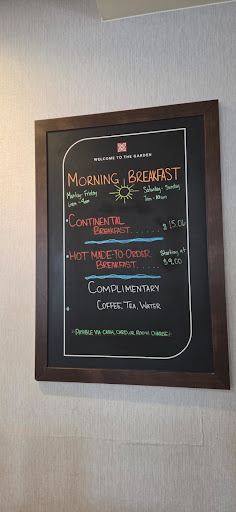 WELCOME TO THE GARDEN
MORNING BREAKFAST
Monday-Friday Saturday-Sunday
6am-9am 7am-10am
CONTINENTAL
BREAKFAST....... $15.06
HOT MADE-TO-ORDER Starting at
BREAKFAST...... $9.00
COMPLIMENTARY
COFFEE, TEA, WATER
PAYABLE VIA CASH, CARD, OR ROOM CHARGE!